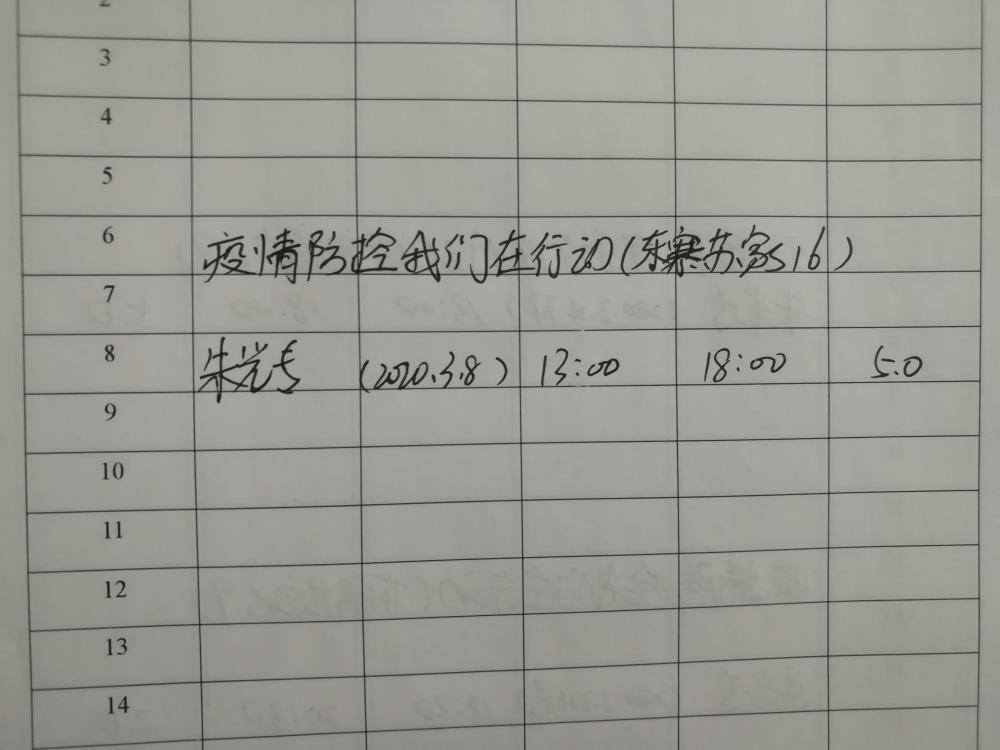 2
3
4
5
6 疫情防控我们在行动(东寨苏家516)
7
8 朱光专 (2020.3.8) 13:00 18:00 5.0
9
10
11
12
13
14